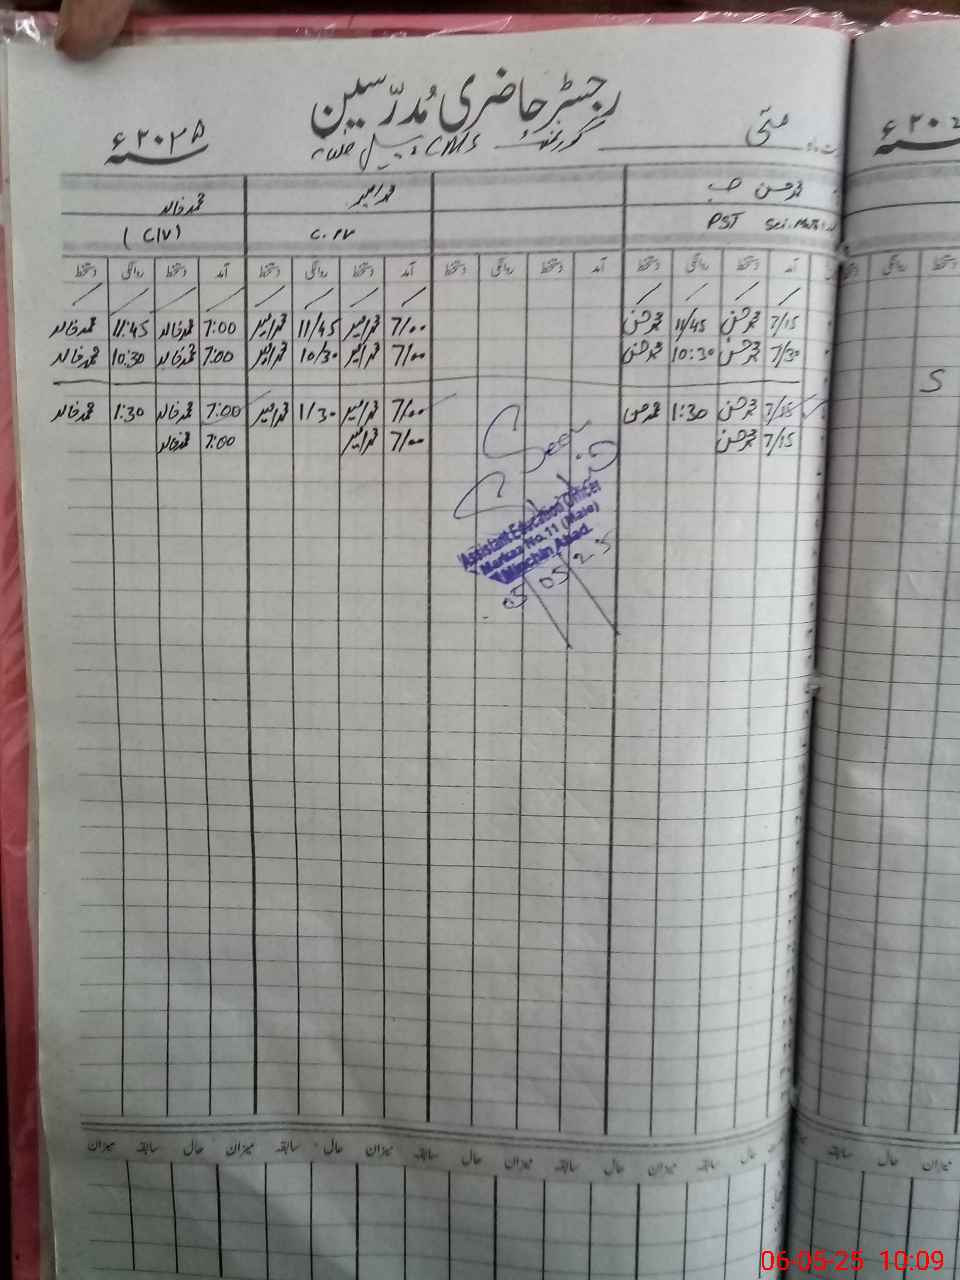 رجسٹر حاضری مُدرّسین
مئی
گورنمنٹ
سنہ ۲۰۲۵ء
محمد حسن
محمد امیر
محمد خالد
PST Sci. Math
(C/V)
آمد دستخط روانگی دستخط آمد دستخط روانگی دستخط آمد دستخط روانگی دستخط آمد دستخط روانگی دستخط
7/15 محمد حسن 11/45 محمد حسن 7/00 محمد امیر 11/45 محمد امیر 7:00 محمد خالد 11:45 محمد خالد
7/30 محمد حسن 10:30 محمد حسن 7/00 محمد امیر 10/30 محمد امیر 7:00 محمد خالد 10:30 محمد خالد
محمد حسن 1:30 محمد حسن 7/00 محمد امیر 1/30 محمد امیر 7:00 محمد خالد 1:30 محمد خالد
7/15 محمد حسن 7/00 محمد امیر 7:00 محمد خالد
S
Seen
Assistant Education Officer
Markaz No.11 (Male)
Minchin Abad.
05 05 25
حال سابقہ میزان حال سابقہ میزان حال سابقہ میزان حال سابقہ میزان حال سابقہ میزان
میزان حال سابقہ
06-05-25 10:09